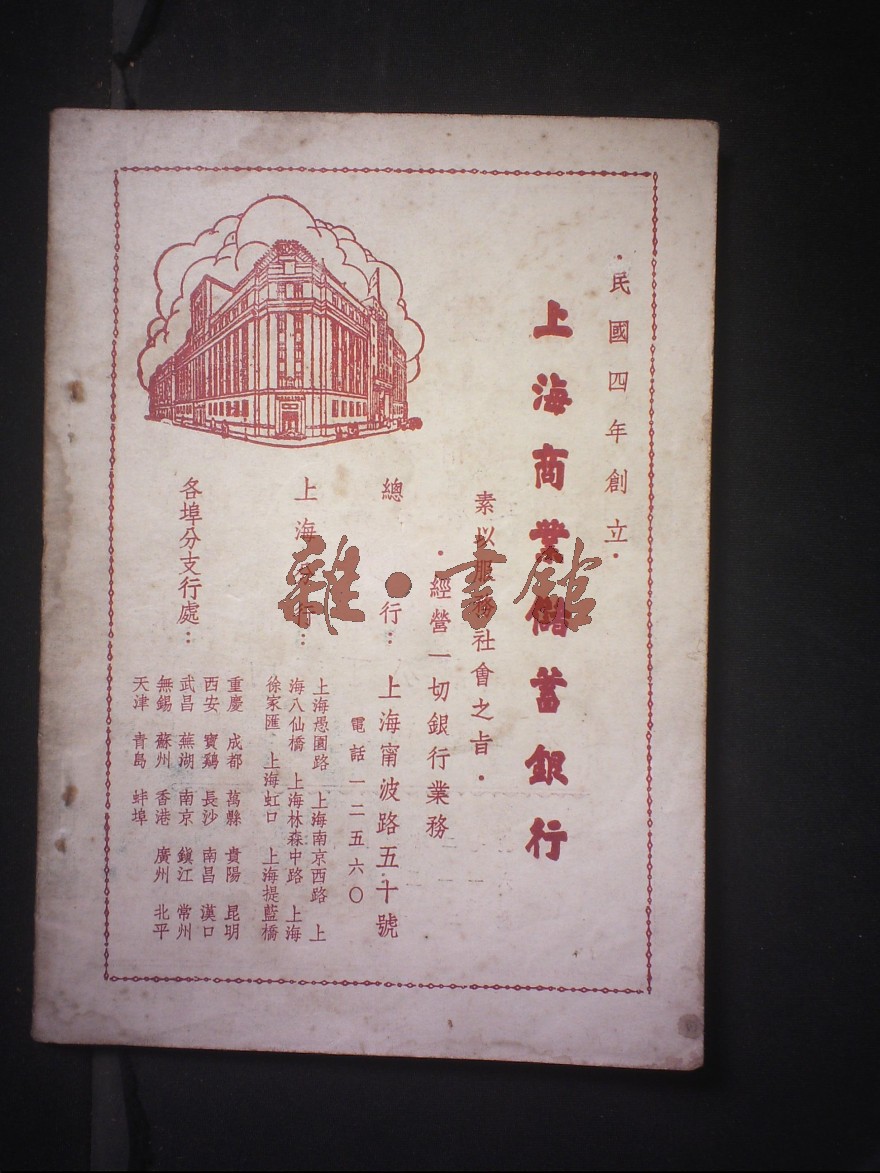 ·民國四年創立·
上海商業儲蓄銀行
素以服務社會之旨·
·經營一切銀行業務
總行：上海甯波路五十號
電話一二五六〇
上海分行：
上海愚園路 上海南京西路 上
海八仙橋 上海林森中路 上海
徐家匯 上海虹口 上海提藍橋
各埠分支行處：
重慶 成都 萬縣 貴陽 昆明
西安 寶鷄 長沙 南昌 漢口
武昌 蕪湖 南京 鎭江 常州
無錫 蘇州 香港 廣州 北平
天津 青島 蚌埠
雜·書館